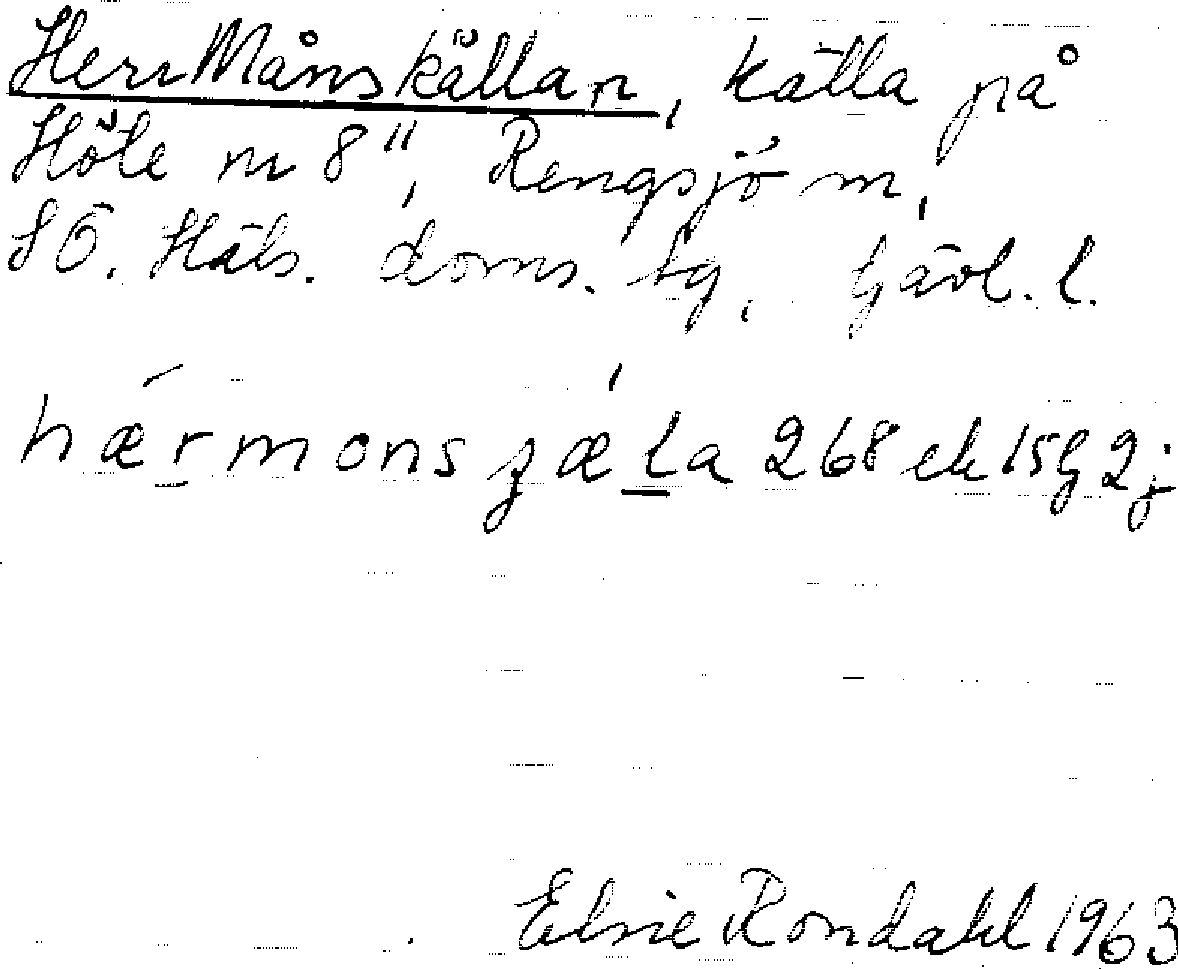 Herr Månskällan, källa på
Höle nr 8", Rengsjö sn,
SÖ. Häls. doms. tg, Gävl. l.
hærmonsʒæla 268 ek 15G2j
Elsie Rondahl 1963